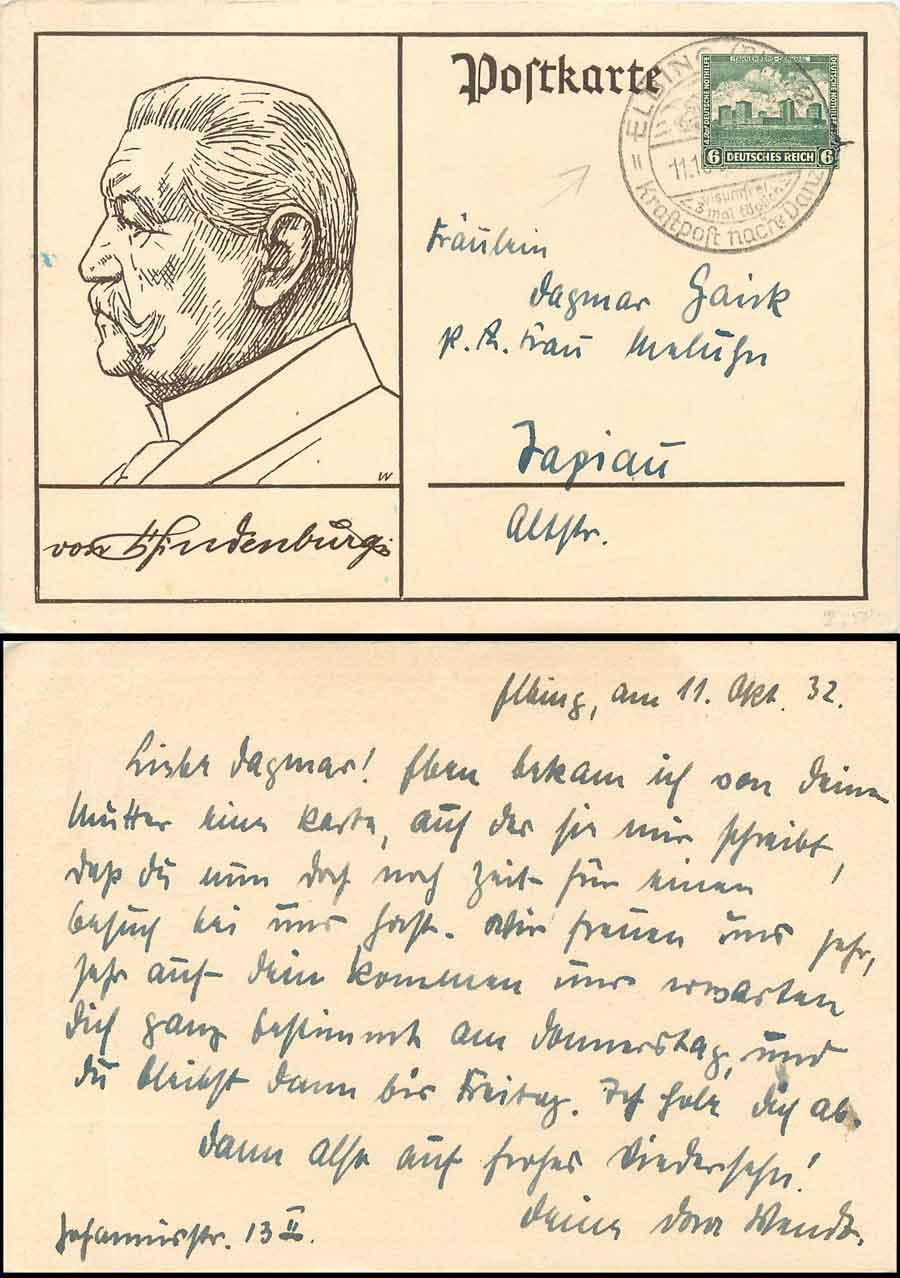 Postkarte
ELBING
11.10
visumfrei
3 mal täglich
Kraftpost nach Danz
TANNENBERG-DENKMAL
DEUTSCHE NOTHILFE
DEUTSCHE NOTHILFE
6 DEUTSCHES REICH 6
Fräulein
Dagmar
Frau
Tapiau
Altstr.
W
von Hindenburg
Elbing, am 11. Okt. 32.
Liebe Dagmar! Eben bekam ich von Deiner
Mutter eine Karte, auf der sie mir schreibt,
daß Du nun doch noch Zeit für einen
Besuch bei uns hast. Wir freuen uns sehr,
sehr auf Dein Kommen und erwarten
Dich ganz bestimmt am Donnerstag, und
Du bleibst dann bis Freitag. Ich hole Dich ab.
Dann also auf frohes Wiedersehn!
Deine Dora Wendt.
Johannisstr. 13 II.